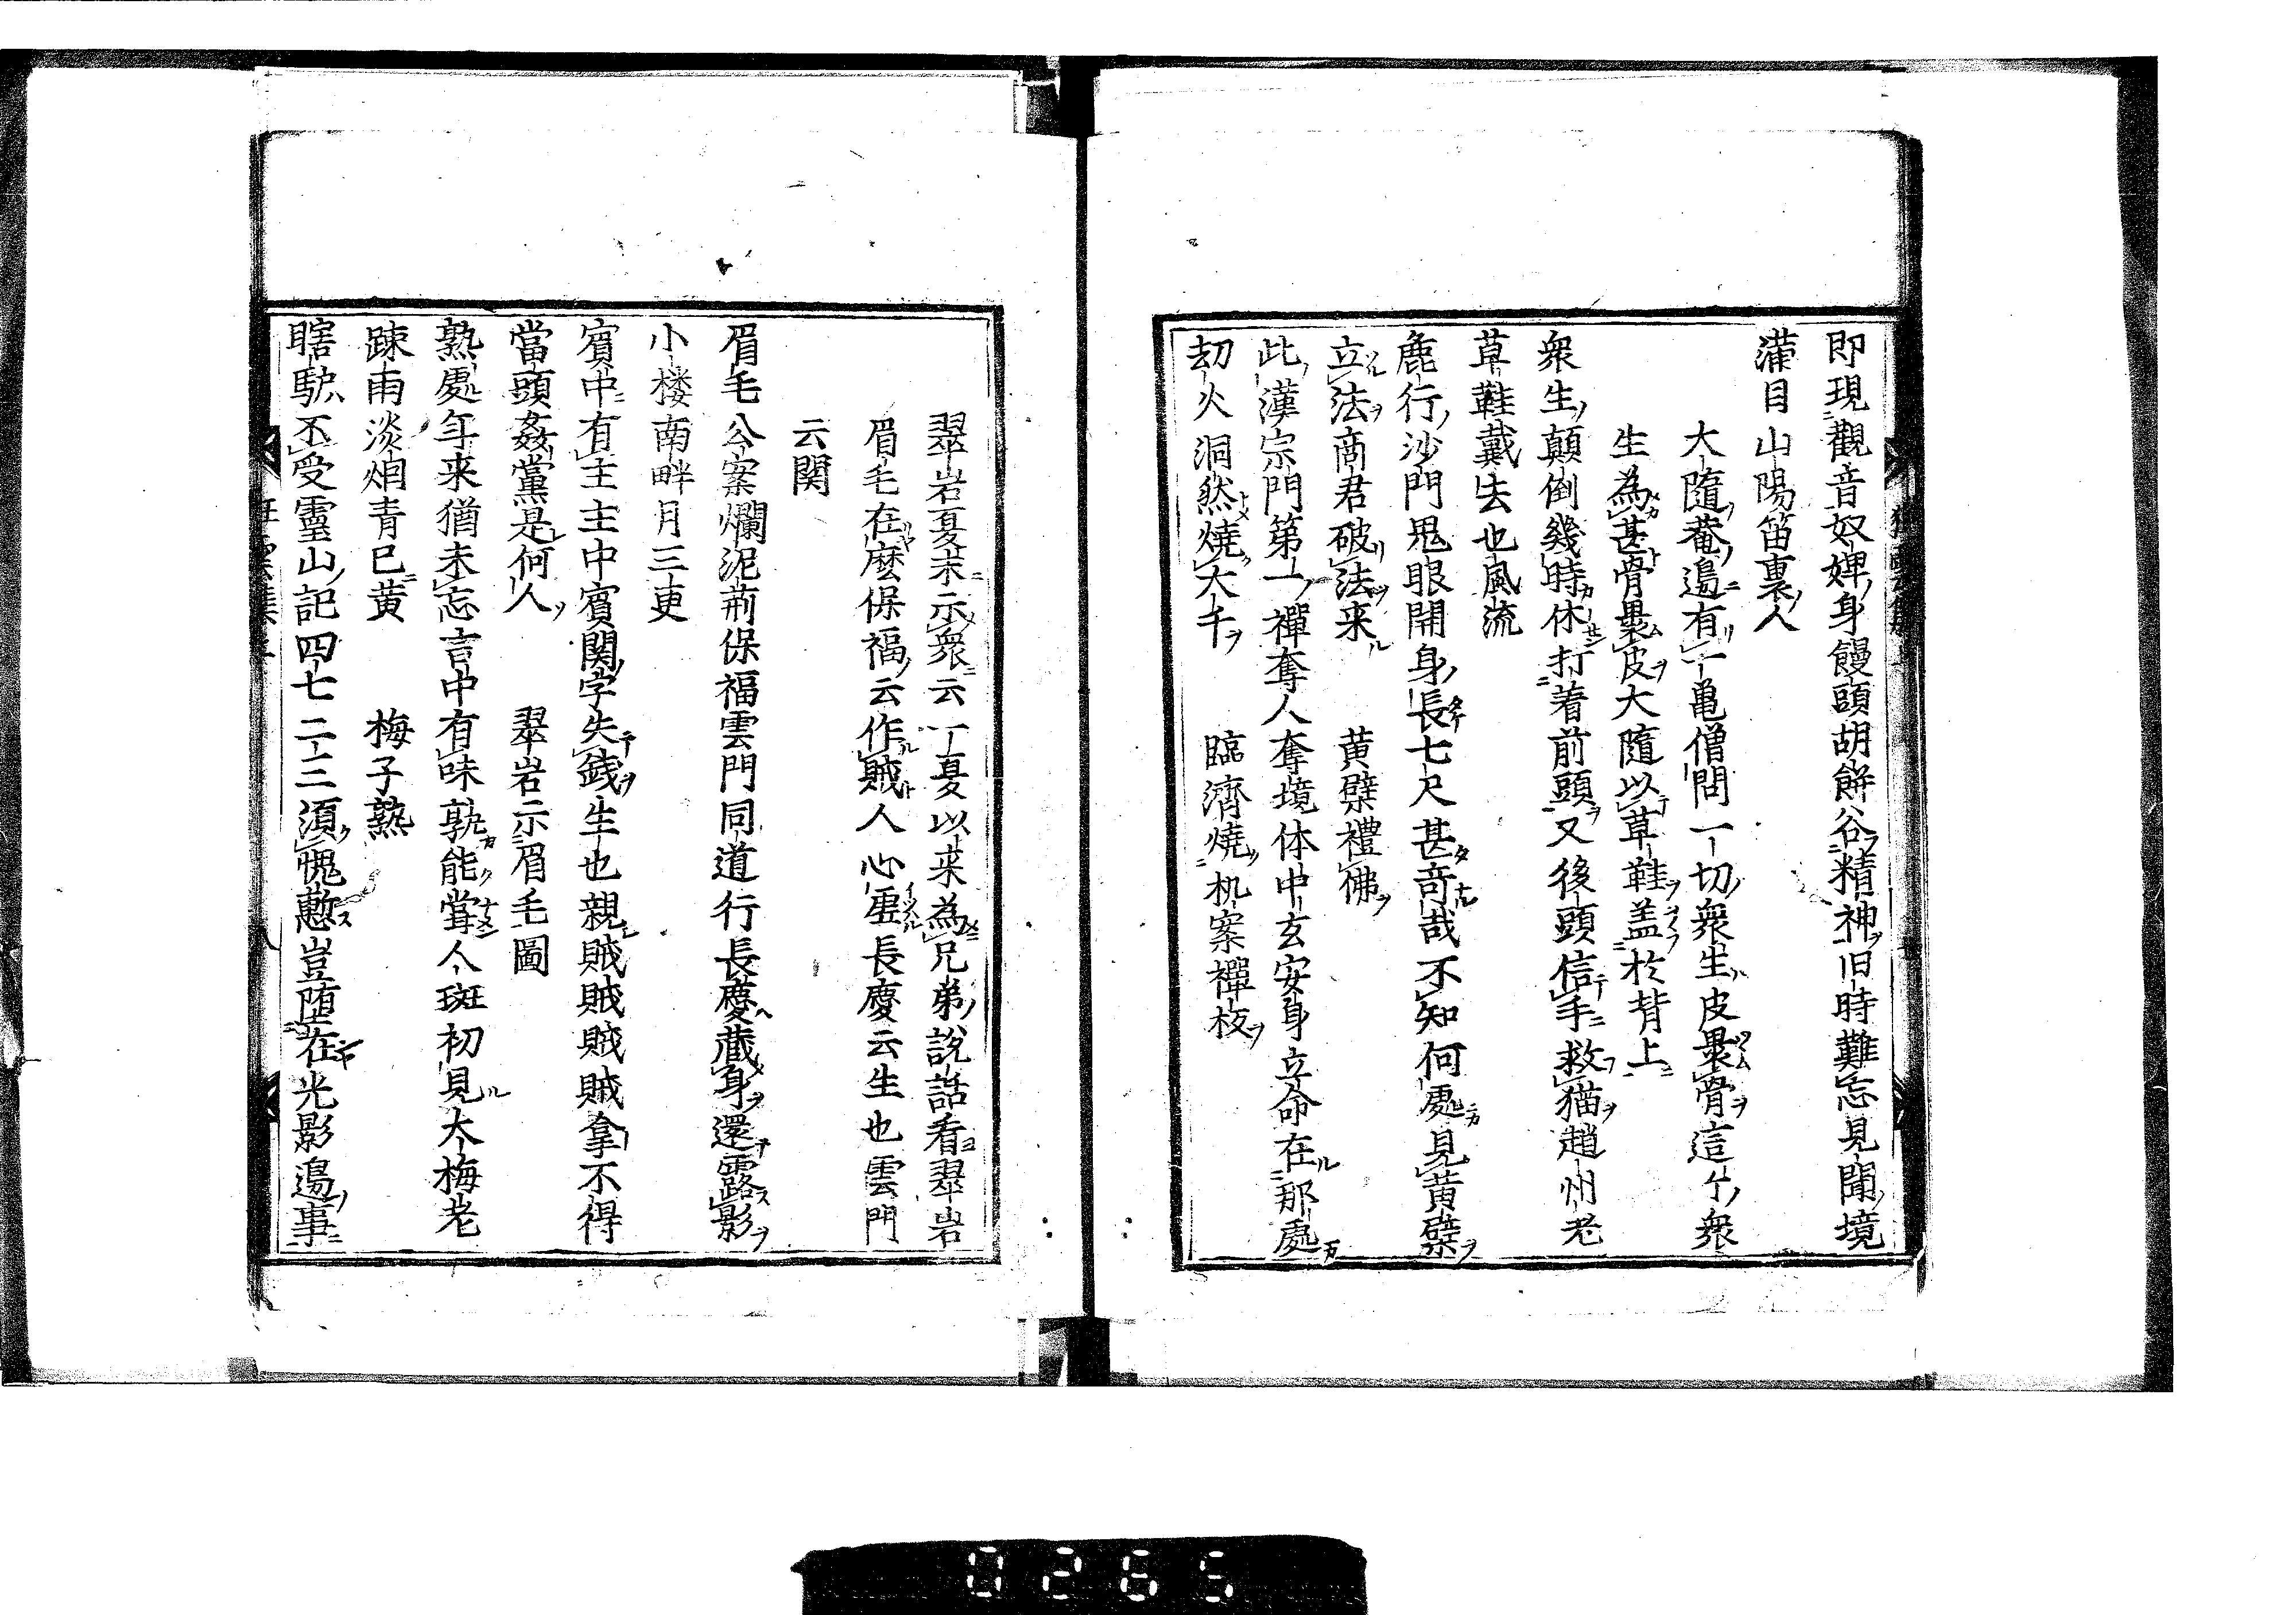 即現觀音奴婢身饅頭胡餅谷精神旧時難忘見聞境
滿目山陽笛裏人
大隨菴邉有一亀僧問一切衆生皮裹骨這个衆
生為甚骨裹皮大隨以草鞋盖於背上
衆生顛倒幾時休打着前頭又後頭信手救猫趙州老
草鞋戴去也風流
麁行沙門鬼眼開身長七尺甚竒哉不知何處見黄檗
立法商君破法来
黄檗禮佛
此漢宗門第一禪奪人奪境体中玄安身立命在那處
刧火洞然燒大千
臨濟燒机案禪板
翠岩夏末示衆云一夏以来為兄弟説話看翠岩
眉毛在麽保福云作賊人心虚長慶云生也雲門
云関
眉毛公案爛泥荊保福雲門同道行長慶藏身還露影
小楼南畔月三更
賓中有主主中賓関字失銭生也親賊賊賊賊拿不得
當頭姦黨是何人
翠岩示眉毛圖
熟處年来猶未忘言中有味孰能嘗人斑初見大梅老
踈雨淡烟青已黄
梅子熟
瞎馿不受靈山記四七二三須愧慙豈堕在光影邉事
0265